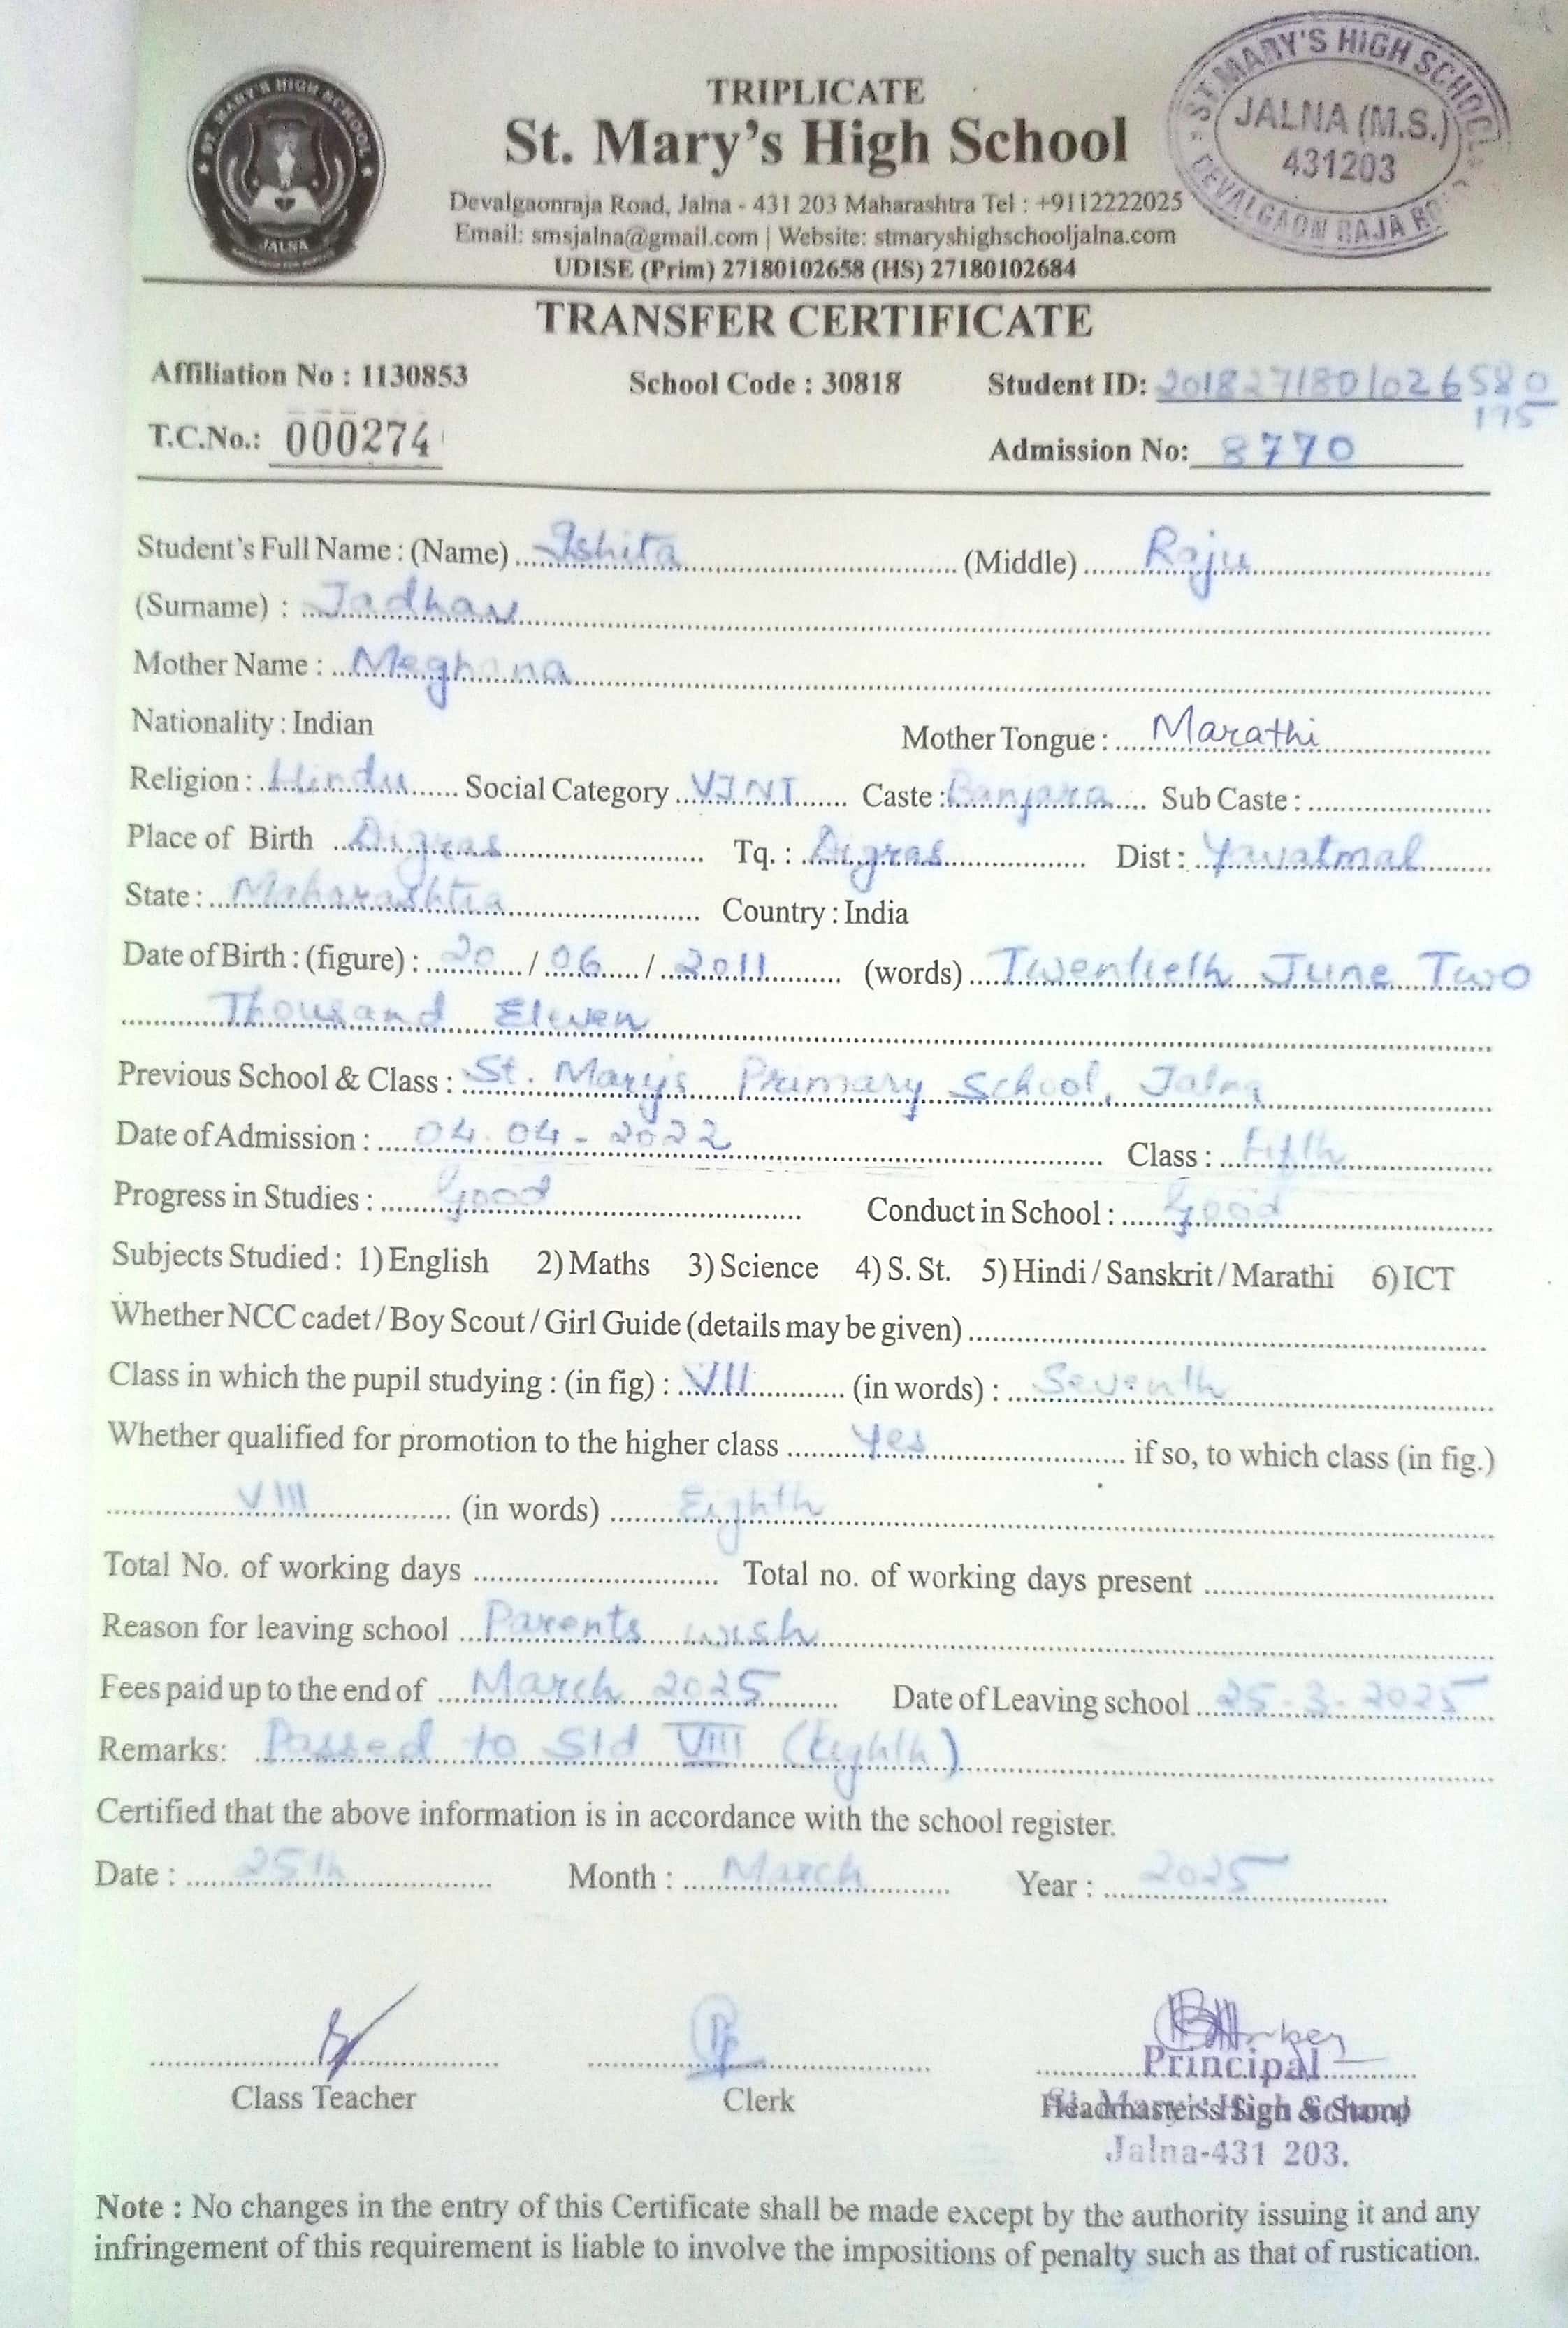 TRIPLICATE
St. Mary's High School
Devalgaonraja Road, Jalna - 431 203 Maharashtra Tel : +9112222025
Email: smsjalna@gmail.com | Website: stmaryshighschooljalna.com
UDISE (Prim) 27180102658 (HS) 27180102684
ST. MARY'S HIGH SCHOOL
JALNA
ST. MARY'S HIGH SCHOOL
JALNA (M.S.)
431203
DEVALGAON RAJA
TRANSFER CERTIFICATE
Affiliation No : 1130853 School Code : 30818 Student ID: 201827180102658 0
175
T.C.No.: 000274 Admission No: 8770
Student's Full Name : (Name) Ishita (Middle) Raju
(Surname) : Jadhav
Mother Name : Meghana
Nationality : Indian Mother Tongue : Marathi
Religion : Hindu Social Category VJNT Caste : Banjara Sub Caste :
Place of Birth Digras Tq. : Digras Dist : Yavatmal
State : Maharashtra Country : India
Date of Birth : (figure) : 20 / 06 / 2011 (words) Twentieth June Two
Thousand Eleven
Previous School & Class : St. Mary's Primary School, Jalna
Date of Admission : 04.04-2022 Class : Fifth
Progress in Studies : Good Conduct in School : Good
Subjects Studied : 1) English 2) Maths 3) Science 4) S. St. 5) Hindi / Sanskrit / Marathi 6) ICT
Whether NCC cadet / Boy Scout / Girl Guide (details may be given)
Class in which the pupil studying : (in fig) : VII (in words) : Seventh
Whether qualified for promotion to the higher class Yes if so, to which class (in fig.)
VIII (in words) Eighth
Total No. of working days Total no. of working days present
Reason for leaving school Parents wish
Fees paid up to the end of March 2025 Date of Leaving school 25-3-2025
Remarks: Passed to Std VIII (Eighth)
Certified that the above information is in accordance with the school register.
Date : 25th Month : March Year : 2025
Principal
Class Teacher Clerk Headmaster's Sign & Stamp
St. Mary's High School
Jalna-431 203.
Note : No changes in the entry of this Certificate shall be made except by the authority issuing it and any
infringement of this requirement is liable to involve the impositions of penalty such as that of rustication.